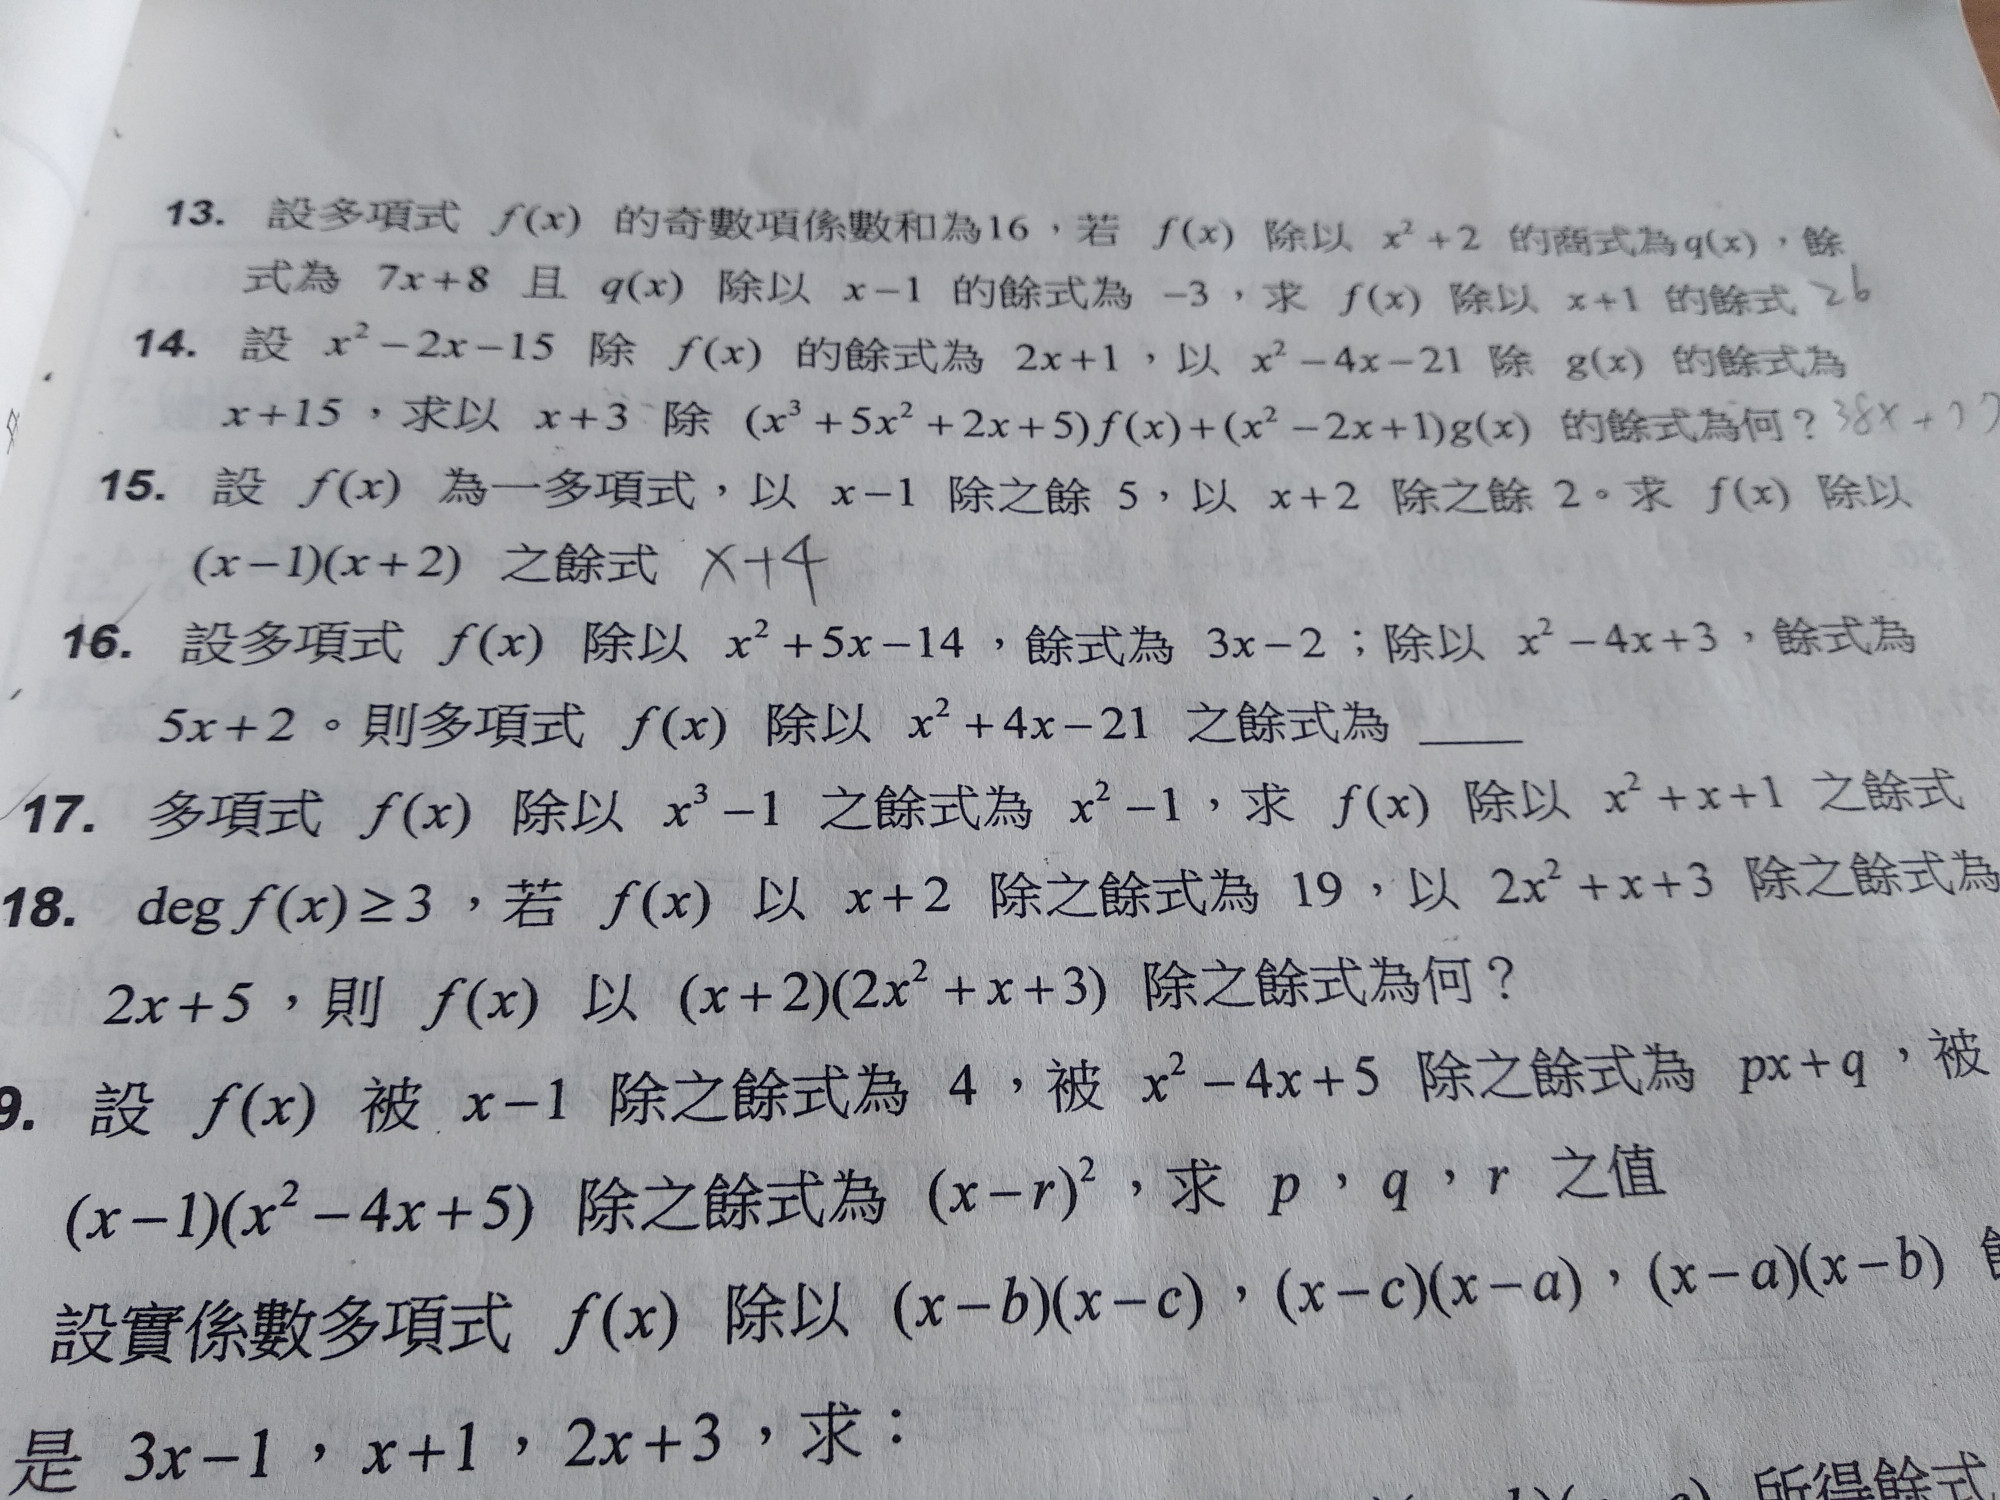 13. 設多項式 f(x) 的奇數項係數和為16，若 f(x) 除以 x²+2 的商式為q(x)，餘
式為 7x+8 且 q(x) 除以 x−1 的餘式為 −3，求 f(x) 除以 x+1 的餘式 26
14. 設 x²−2x−15 除 f(x) 的餘式為 2x+1，以 x²−4x−21 除 g(x) 的餘式為
x+15，求以 x+3 除 (x³+5x²+2x+5)f(x)+(x²−2x+1)g(x) 的餘式為何？38x+
15. 設 f(x) 為一多項式，以 x−1 除之餘 5，以 x+2 除之餘 2。求 f(x) 除以
(x−1)(x+2) 之餘式 x+4
16. 設多項式 f(x) 除以 x²+5x−14，餘式為 3x−2；除以 x²−4x+3，餘式為
5x+2。則多項式 f(x) 除以 x²+4x−21 之餘式為 ____
17. 多項式 f(x) 除以 x³−1 之餘式為 x²−1，求 f(x) 除以 x²+x+1 之餘式
18. deg f(x)≥3，若 f(x) 以 x+2 除之餘式為 19，以 2x²+x+3 除之餘式為
2x+5，則 f(x) 以 (x+2)(2x²+x+3) 除之餘式為何？
9. 設 f(x) 被 x−1 除之餘式為 4，被 x²−4x+5 除之餘式為 px+q，被
(x−1)(x²−4x+5) 除之餘式為 (x−r)²，求 p，q，r 之值
設實係數多項式 f(x) 除以 (x−b)(x−c)，(x−c)(x−a)，(x−a)(x−b)
是 3x−1，x+1，2x+3，求：
所得餘式